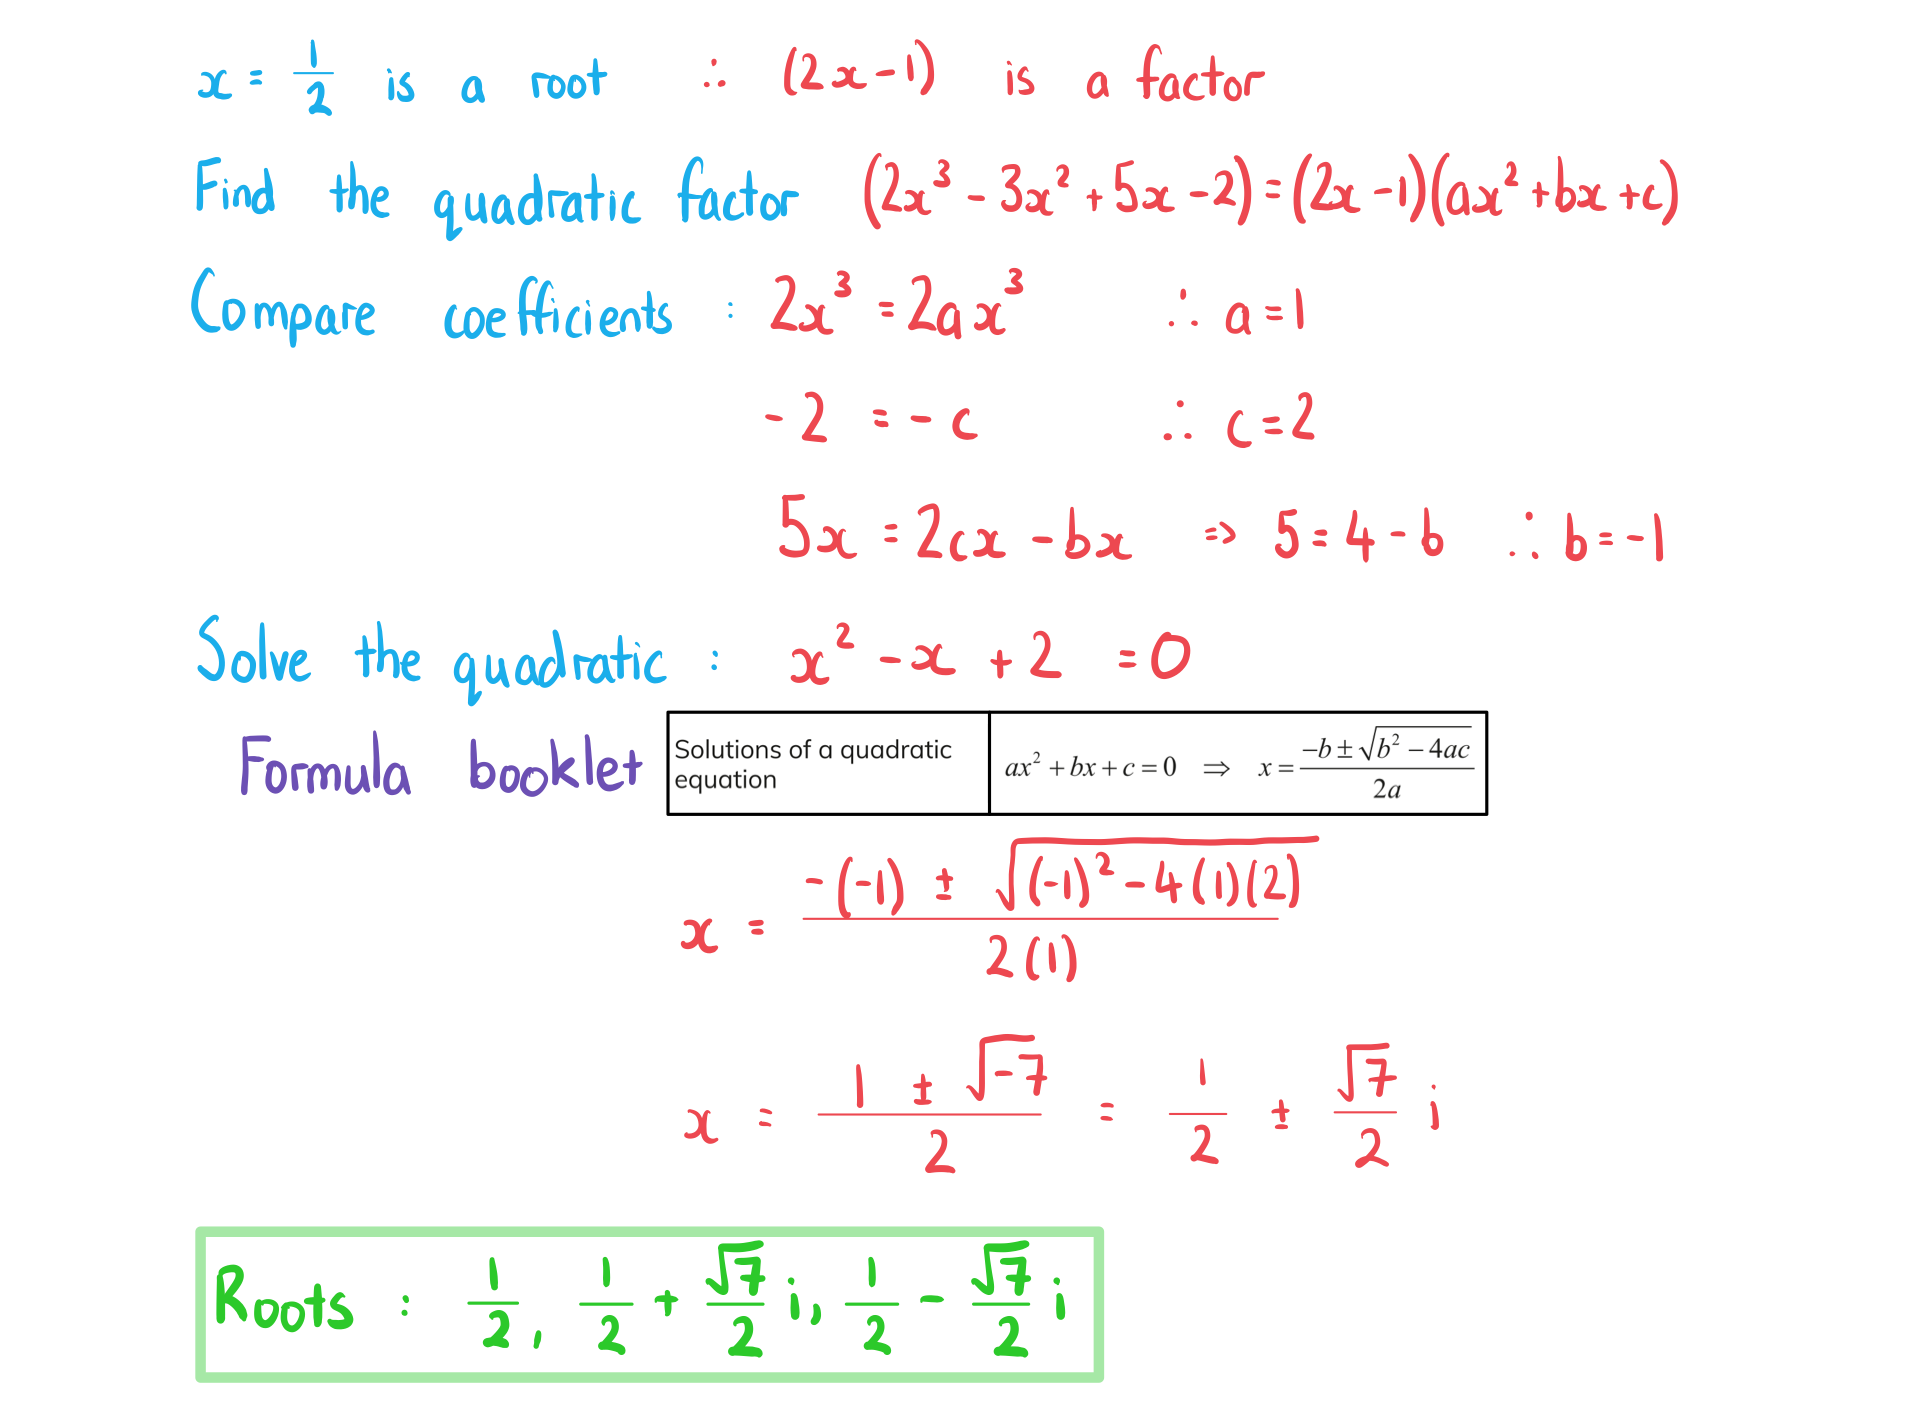 x = 1/2 is a root ∴ (2x-1) is a factor
Find the quadratic factor (2x³ - 3x² + 5x - 2) = (2x - 1)(ax² + bx + c)
Compare coefficients : 2x³ = 2ax³ ∴ a = 1
-2 = -c ∴ c = 2
5x = 2cx - bx ⇒ 5 = 4 - b ∴ b = -1
Solve the quadratic : x² - x + 2 = 0
Formula booklet
Solutions of a quadratic
equation
ax² + bx + c = 0 ⇒ x = (-b ± √(b² - 4ac))/2a
x = (-(-1) ± √((-1)² - 4(1)(2)))/2(1)
x = (1 ± √-7)/2 = 1/2 ± √7/2 i
Roots : 1/2, 1/2 + √7/2 i, 1/2 - √7/2 i